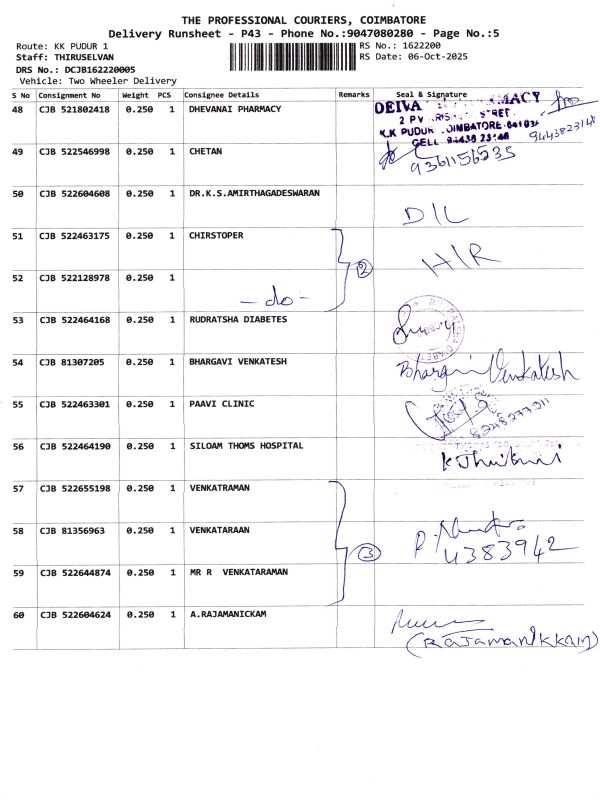 THE PROFESSIONAL COURIERS, COIMBATORE
Delivery Runsheet - P43 - Phone No.:9047080280 - Page No.:5
Route: KK PUDUR 1 RS No.: 1622200
Staff: THIRUSELVAN RS Date: 06-Oct-2025
DRS No.: DCJB162220005
Vehicle: Two Wheeler Delivery
S No Consignment No Weight PCS Consignee Details Remarks Seal & Signature
48 CJB 521802418 0.250 1 DHEVANAI PHARMACY
2 P
STREET
K.K PUDUR COIMBATORE-641038
CELL 94438 23148
9443823148
49 CJB 522546998 0.250 1 CHETAN 9361156535
50 CJB 522604608 0.250 1 DR.K.S.AMIRTHAGADESWARAN D/L
51 CJB 522463175 0.250 1 CHIRSTOPER H/R
2
52 CJB 522128978 0.250 1 - do -
53 CJB 522464168 0.250 1 RUDRATSHA DIABETES
54 CJB 81307205 0.250 1 BHARGAVI VENKATESH Bhargavi Venkatesh
55 CJB 522463301 0.250 1 PAAVI CLINIC 8248277211
56 CJB 522464190 0.250 1 SILOAM THOMS HOSPITAL
57 CJB 522655198 0.250 1 VENKATRAMAN
58 CJB 81356963 0.250 1 VENKATARAAN 3 4383942
59 CJB 522644874 0.250 1 MR R VENKATARAMAN
60 CJB 522604624 0.250 1 A.RAJAMANICKAM
(RAJAMANIKKAM)